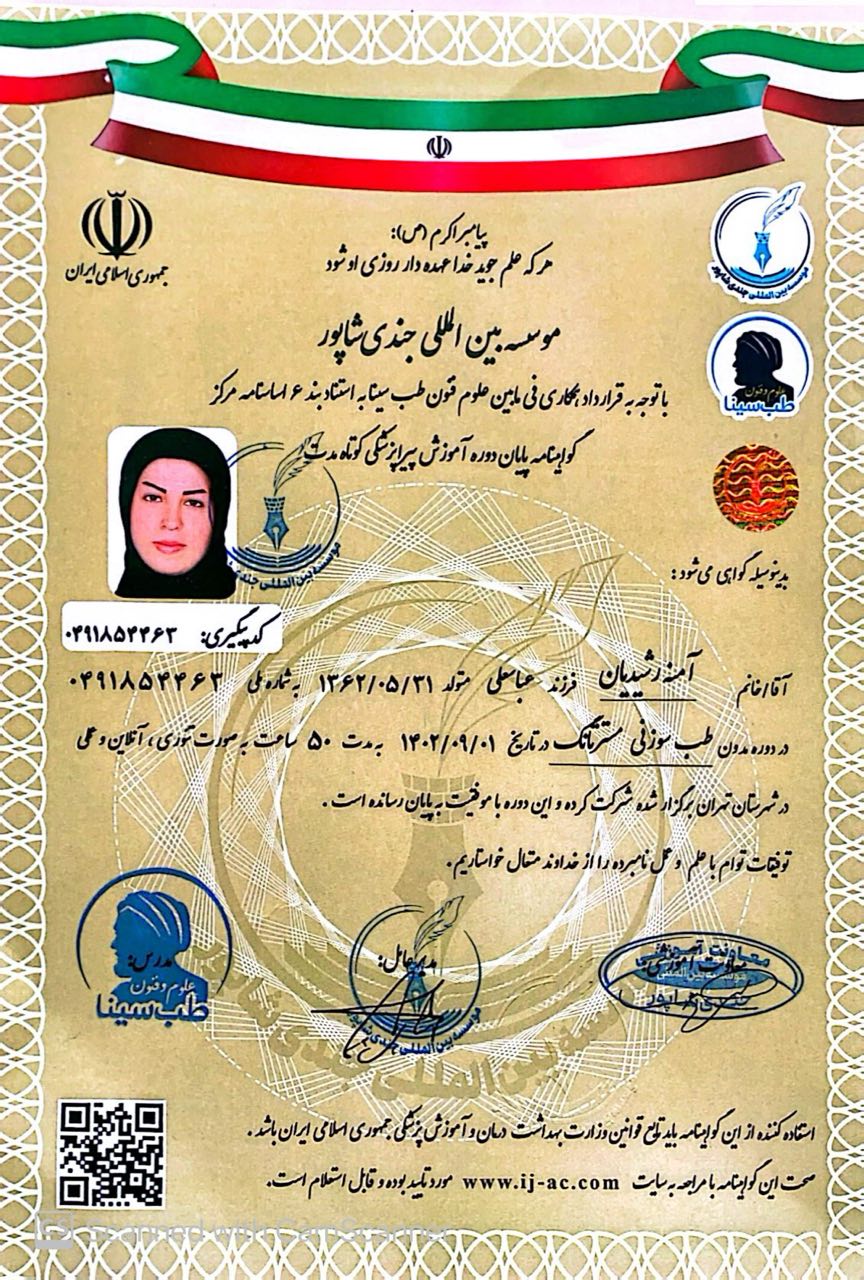 جمهوری اسلامی ایران
پیامبر اکرم (ص):
هر که علم جوید خدا عهده دار روزی او شود
موسسه بین المللی جندی شاپور
موسسه بین المللی جندی شاپور
علوم و فنون
طب سینا
با توجه به قرارداد همکاری فی مابین علوم فنون طب سینا به استناد بند ۶ اساسنامه مرکز
گواهینامه پایان دوره آموزش پیراپزشکی کوتاه مدت
موسسه بین المللی جندی
بدینوسیله گواهی می شود :
کد پیگیری: ۰۴۹۱۸۵۴۴۶۳
آقا/خانم آمنه رشیدیان فرزند عباسعلی متولد ۱۳۶۲/۰۵/۳۱ به شماره ملی ۰۴۹۱۸۵۴۴۶۳
در دوره مدون طب سوزنی مسترتانگ در تاریخ ۱۴۰۲/۰۹/۰۱ به مدت ۵۰ ساعت به صورت تئوری ، آنلاین و عملی
در شهرستان تهران برگزار شده شرکت کرده و این دوره با موفقیت به پایان رسانده است .
توفیقات توام با علم و عمل نامبرده را از خداوند متعال خواستاریم.
معاونت آموزشی
معاونت آموزشی:
موسسه بین المللی
جندی شاپور
مدیرعامل:
موسسه بین المللی جندی شاپور
مدرس:
علوم و فنون
طب سینا
موسسه بین المللی جندی شاپور
استفاده کننده از این گواهینامه باید تابع قوانین وزارت بهداشت درمان و آموزش پزشکی جمهوری اسلامی ایران باشد .
صحت این گواهینامه با مراجعه به سایت www.ij-ac.com مورد تایید بوده و قابل استعلام است.
CS Scanned with CamScanner